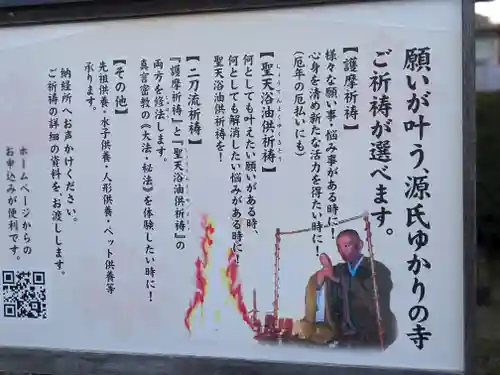 願いが叶う、源氏ゆかりの寺
ご祈祷が選べます。
【護摩祈祷】
様々な願い事・悩み事がある時に!
心身を清め新たな活力を得たい時に!
(厄年の厄払いにも)
【聖天浴油供祈祷】
何としても叶えたい願いがある時、
何としても解消したい悩みがある時に
聖天浴油供祈祷を!
【二刀流祈祷】
『護摩祈祷』と『聖天浴油供祈祷』の
両方を修法します。
真言密教の《大法・秘法》を体験したい時に!
【その他】
先祖供養・水子供養・人形供養・ペット供養等
承ります。
納経所へお声かけください。
ご祈祷の詳細の資料を、お渡しします。
ホームページからの
お申込みが便利です。